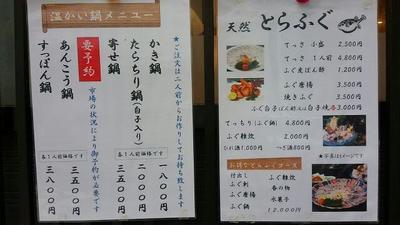 温かい鍋メニュー
★ご注文は二人前からお作りしてお持ち致します
かき鍋
たらちり鍋(白子入り)
寄せ鍋
要予約
市場の状況により御予約が必要です
あんこう鍋
すっぽん鍋
各1人前価格です
一八〇〇円
二〇〇〇円
三五〇〇円
各1人前価格です
三五〇〇円
三八〇〇円
天然 とらふぐ
てっさ 小盛 2,500円
てっさ 1人前 4,800円
ふぐ皮ぽん酢 1,200円
ふぐ唐揚 3,500円
焼きふぐ 3,500円
ふぐ白子ぽん酢又は白子焼 3,000円
てっちり(ふぐ鍋) 4,800円
ふぐ雑炊 2,000円
ひれ酒1,000円 つぎ酒800円
写真はイメージです
お得なとらふぐコース
付出し
ふぐ雑炊
ふぐ刺
香の物
ふぐ唐揚
水菓子
ふぐ鍋
12,000円